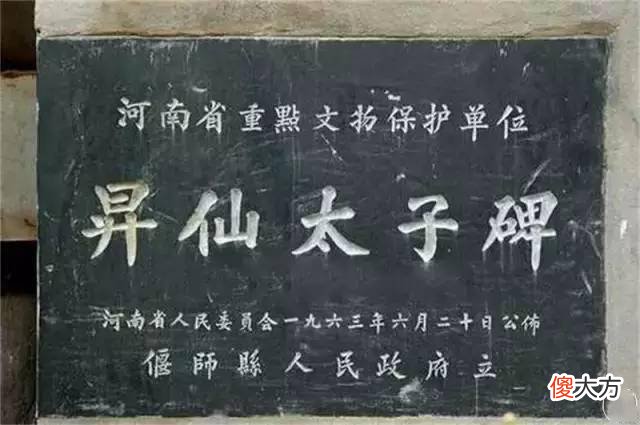 河南省重點文物保护单位
昇仙太子碑
河南省人民委員会一九六三年六月二十日公佈
偃師縣人民政府立
傻大方